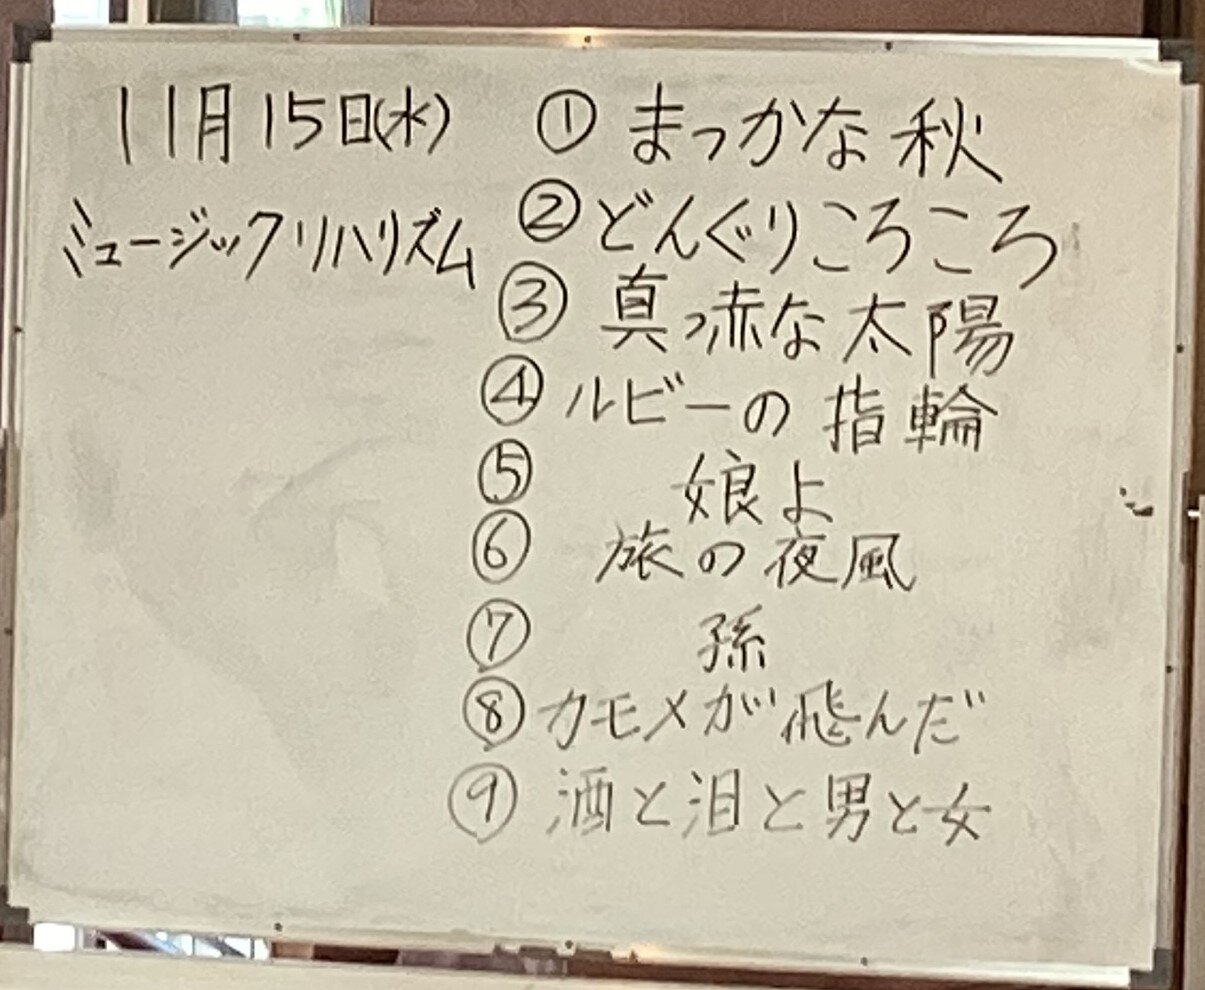 11月15日(水)
ミュージックリハリズム
① まっかな秋
② どんぐりころころ
③ 真っ赤な太陽
④ ルビーの指輪
⑤ 娘よ
⑥ 旅の夜風
⑦ 孫
⑧ カモメが飛んだ
⑨ 酒と泪と男と女